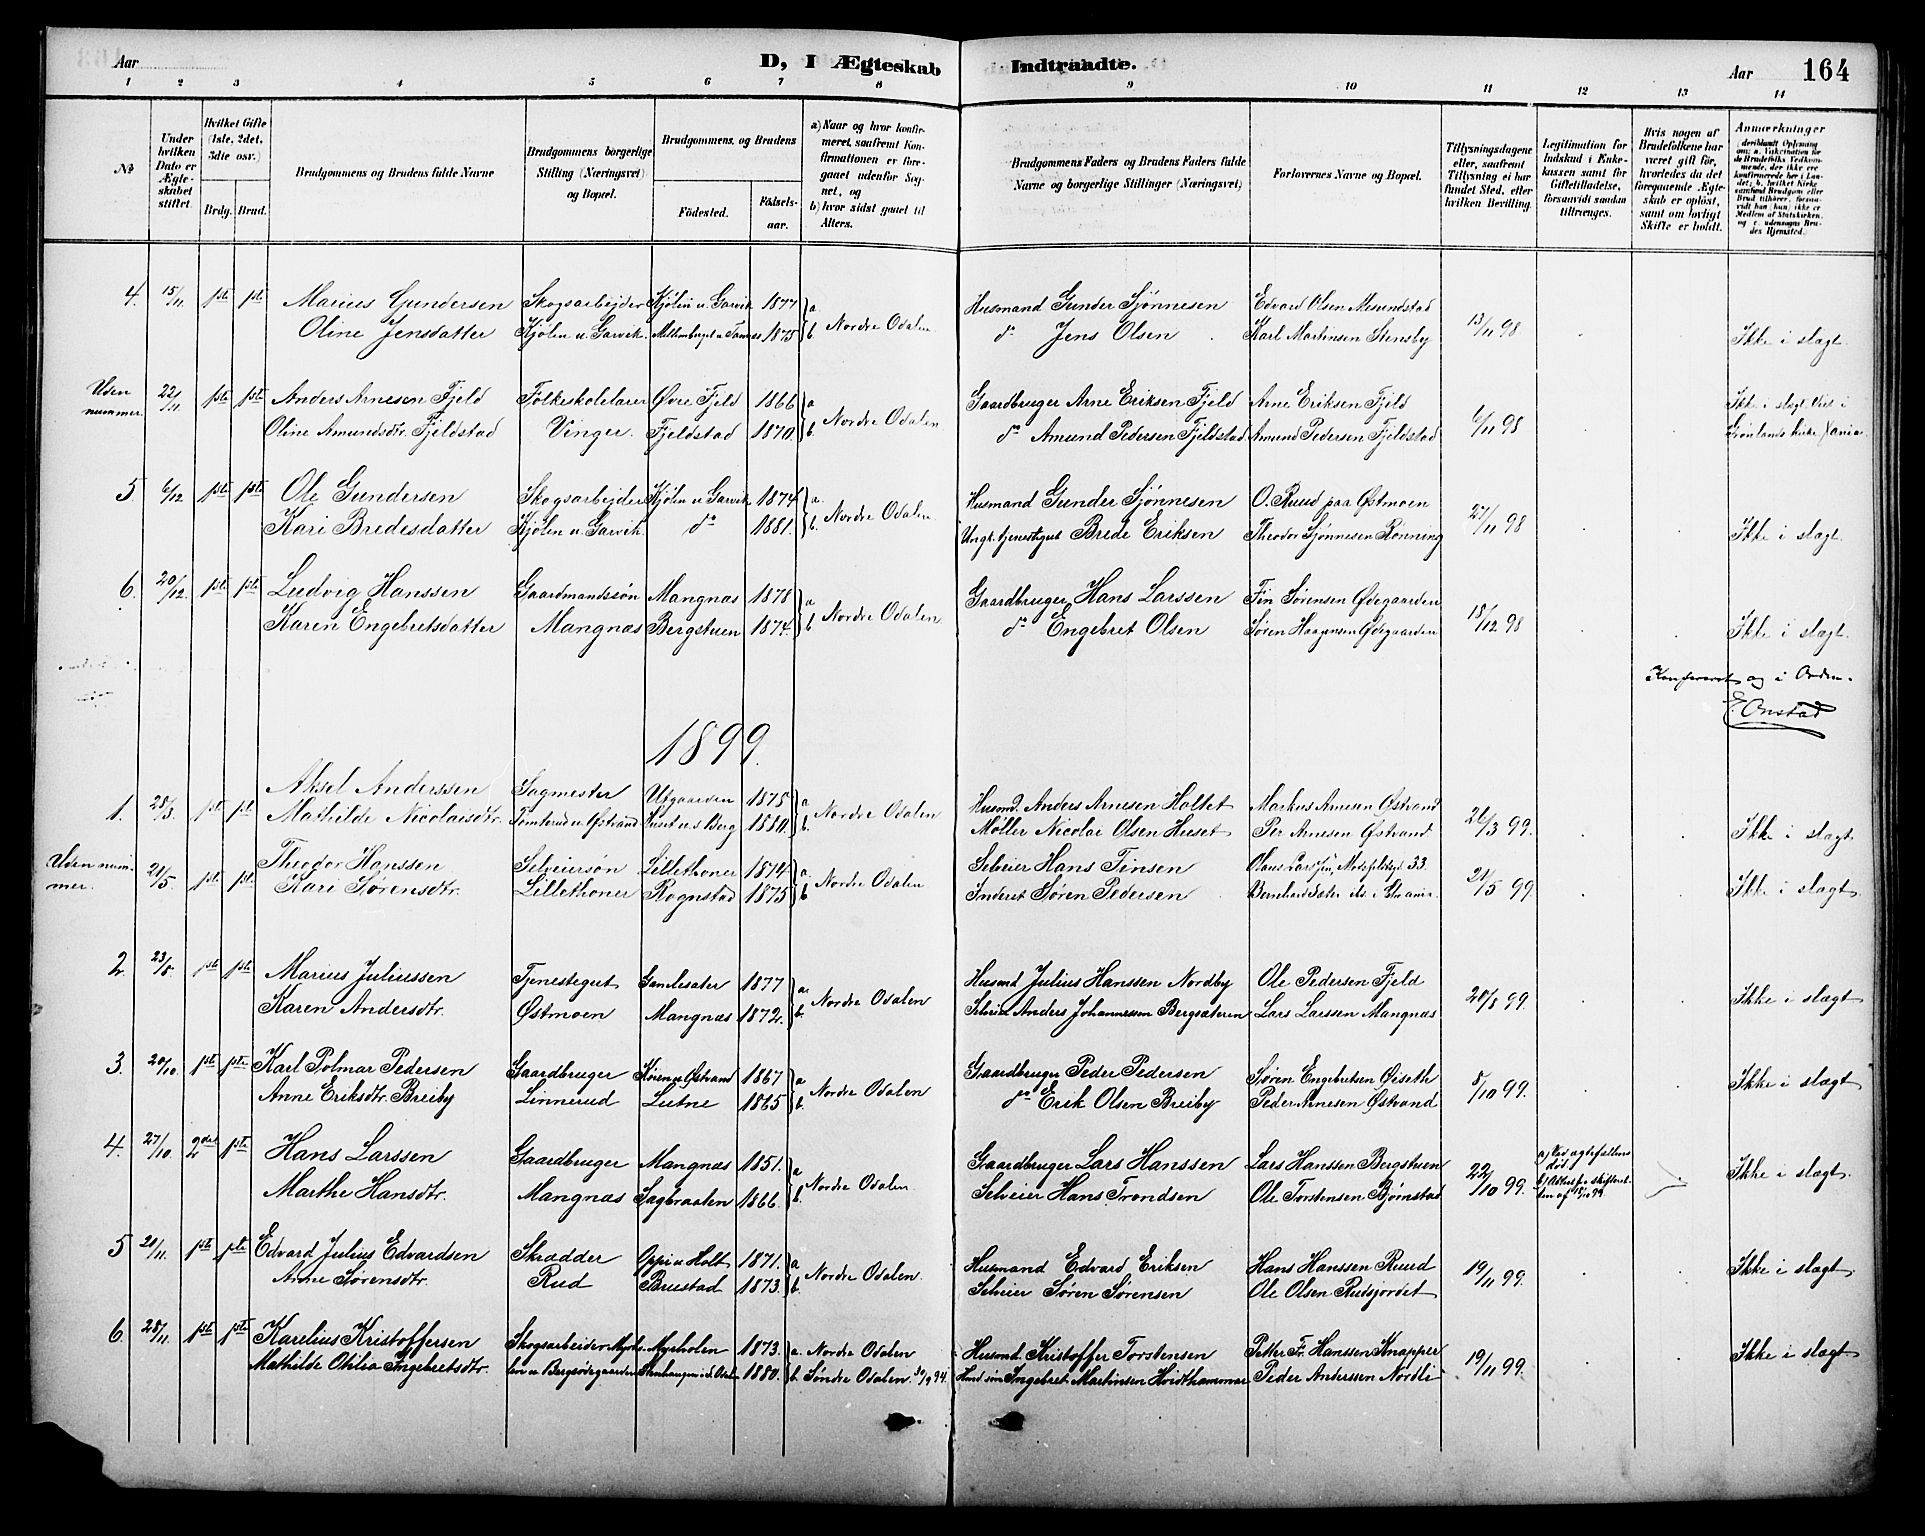 Aar
D, I Ægteskab Indtraadte.
Aar 164
1 2 3 4 5 6 7 8 9 10 11 12 13 14
No
Under hvilken Dato er Ægteskabet stiftet.
Hvilket Gifte (1ste, 2det, 3die osv.)
Brdg. Brud.
Brudgommens og Brudens fulde Navne
Brudgommens borgerlige Stilling (Næringsvei) og Bopæl.
Brudgommens og Brudens
Födested. Födsels-aar.
a) Naar og hvor konfirmeret, saafremt Konfirmationen er foregaaet udenfor Sognet, og
b) hvor sidst gaaet til Alters.
Brudgommens Faders og Brudens Faders fulde Navne og borgerlige Stillinger (Næringsvei)
Forlovernes Navne og Bopæl.
Tillysningsdagene eller, saafremt Tillysning ei har fundet Sted, efter hvilken Bevilling
Legitimation for Indskud i Enkekassen samt for Giftetilladelse, forsaavidt saadan tiltrænges.
Hvis nogen af Brudefolkene har været gift før, hvorledes da det foregaaende Ægteskab er oplöst, samt om lovligt Skifte er holdt.
Anmærkninger
4. 15/11 1ste 1ste Marius Gundersen Skogsarbejder Kjölen u. Garvik 1877 a Husmand Gunder Sjønnesen Edvard Olsen Mesundstad 13/11 98
Oline Jensdatter Kjölen u. Garvik. 1875 b. Nordre Odalen do Jens Olsen Karl Martinsen Stensby Ikke i slægt.
Uden nummer. 22/11 1ste 1ste Anders Arnesen Fjeld Folkeskolelærer Øvre Fjeld 1866 a Gaardbruger Arne Eriksen Fjeld Arne Eriksen Fjeld 6/11 98 Ikke i slægt. Viet i
Oline Amundsdtr. Fjeldstad Vinger. Fjeldstad 1870. b. Nordre Odalen do Amund Pedersen Fjeldstad Amund Pedersen Fjeldstad Grønlands kirke Xania.
5 6/12 1ste 1ste Ole Gundersen Skogsarbejder Kjölen u. Garvik 1874 a. Husmand Gunder Sjønnesen O. Ruud paa Østmoen 27/11 98
Kari Bredesdatter Kjölen u. Garvik. do 1881. b. Nordre Odalen Ungk. tjenestegut Brede Eriksen Theodor Sjønnesen Rønning Ikke i slægt.
6. 20/12. 1ste 1ste Ludvig Hanssen Gaardmandssön Mangnæs 1878 a Gaardbruger Hans Larssen Fin Sørensen Ødegaarden 18/12 98
Karen Engebretsdatter Mangnæs Bergstuen 1874. b Nordre Odalen. do Engebret Olsen Søren Haagensen Ødegaarden Ikke i slægt.
Konfereret og i Orden.
E. Onstad
1899.
1. 28/3. 1ste 1ste Aksel Anderssen Sagmester Utgaarden 1875 a Husmd. Anders Arnesen Holtet Markus Arnesen Østvand 26/3 99.
Mathilde Nicolaisdtr. Tomterud u. Østvand Huset u. s. Berg 1880. b. Nordre Odalen Møller Nicolai Olsen Huset Per Arnesen Østvand Ikke i slægt.
Uden nummer. 21/5. 1ste 1ste. Theodor Hanssen Selveiersön Lillethoner 1874 a. Selveier Hans Finsen 21/5 99.
Kari Sørensdtr. Lillethoner Rognstad 1875 b Nordre Odalen Inderst Søren Pedersen Ikke i slægt
2. 23/8. 1ste 1ste. Marius Juliussen Tjenestegut Gamlesæter 1877 a Husmd Julius Hanssen Nordby Ole Pedersen Fjeld 20/8 99.
Karen Andersdtr. Østmoen Mangnæs 1872. b. Nordre Odalen Selveier Anders Johannessen Bergsæteren Lars Larssen Mangnæs Ikke i slægt
3. 20/10. 1ste 1ste Karl Polmar Pedersen Gaardbruger 1867 a Gaardbruger Peder Pedersen Søren Engebretsen Øiseth 8/10 99.
Anne Eriksdtr. Breiby Linnerud Lutne 1865 b. Nordre Odalen do Erik Olsen Breiby Peder Arnesen Østvand Ikke i slægt
4. 27/10. 2det 1ste Hans Larssen Gaardbruger Mangnæs 1851. a Gaardbruger Lars Hanssen Lars Hanssen Bergstuen 22/10 99. a) Ved ægtefællens død.
Marthe Hansdtr. Mangnæs Sagbraaten 1866. b. Nordre Odalen. Selveier Hans Trondsen Ole Torstensen Bjørnstad Ikke i slægt.
5 21/11. 1ste 1ste Edvard Julius Edvardsen Skrædder Oppi u. Holt 1871. a Husmand Edvard Eriksen Hans Hanssen Ruud 19/11 99.
Anne Sørensdtr. Rud Brustad 1873. b. Nordre Odalen. Selveier Søren Sørensen Ole Olsen Rudsjordet Ikke i slægt.
6. 28/11. 1ste 1ste Karelius Kristoffersen Skogsarbeider Myrho- Myrholen 1873. a. Nordre Odalen Husmd. Kristoffer Torstensen Petter Fr. Hanssen Knapper 19/11 99.
Mathilde Otilia Ingebretsdtr. len u. Bergsødegaarden 1880. b. Søndre Odalen. 30/9 94. Ingebret Martinsen Hvidthammer Peder Anderssen Nordli Ikke i slægt